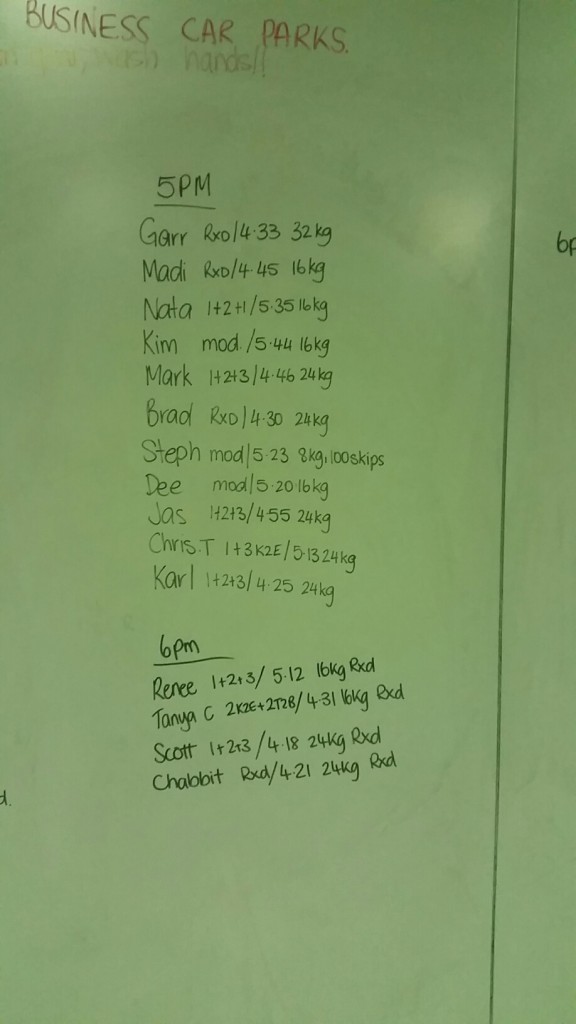 BUSINESS CAR PARKS.
wash hands!!
5PM
Garr RxD/4.33 32kg
Madi RxD/4.45 16kg
Nata 1+2+1/5.35 16kg
Kim mod./5.44 16kg
Mark 1+2+3/4.46 24kg
Brad RxD/4.30 24kg
Steph mod/5.23 8kg,100skips
Dee mod/5.20 16kg
Jas 1+2+3/4.55 24kg
Chris.T 1+3K2E/5.13 24kg
Karl 1+2+3/4.25 24kg
6pm
Renee 1+2+3/ 5.12 16kg Rxd
Tanya C 2K2E+2T2B/4.31 16kg Rxd
Scott 1+2+3/4.18 24kg Rxd
Chabbit Rxd/4.21 24kg Rxd
6p
d.